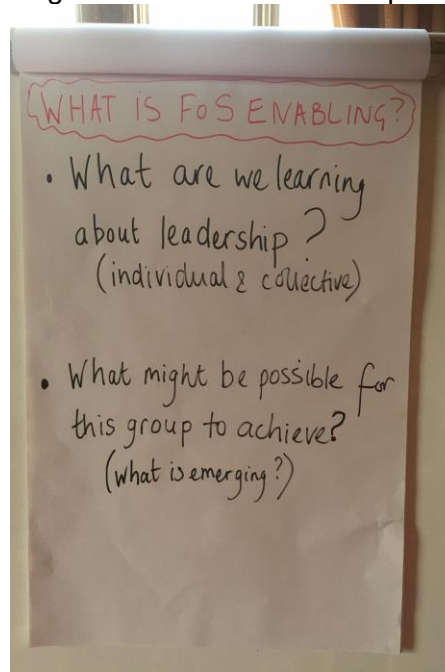 WHAT IS FoS ENABLING?
• What are we learning
about leadership?
(individual & collective)
• What might be possible for
this group to achieve?
(what is emerging?)